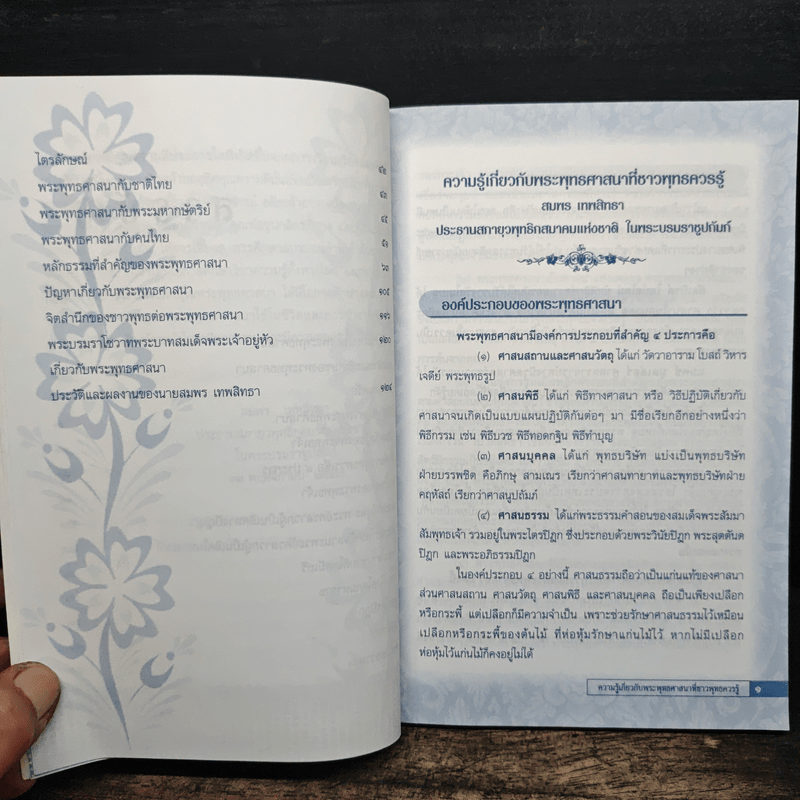 ไตรลักษณ์ ๔๒
พระพุทธศาสนากับชาติไทย ๔๓
พระพุทธศาสนากับพระมหากษัตริย์ ๔๕
พระพุทธศาสนากับคนไทย ๕๑
หลักธรรมที่สำคัญของพระพุทธศาสนา ๖๓
ปัญหาเกี่ยวกับพระพุทธศาสนา ๑๐๕
จิตสำนึกของชาวพุทธต่อพระพุทธศาสนา ๑๑๖
พระบรมราโชวาทพระบาทสมเด็จพระเจ้าอยู่หัว ๑๒๐
เกี่ยวกับพระพุทธศาสนา
ประวัติและผลงานของนายสมพร เทพสิทธา ๑๒๔
ความรู้เกี่ยวกับพระพุทธศาสนาที่ชาวพุทธควรรู้
สมพร เทพสิทธา
ประธานสภายุวพุทธิกสมาคมแห่งชาติ ในพระบรมราชูปถัมภ์
องค์ประกอบของพระพุทธศาสนา
พระพุทธศาสนามีองค์การประกอบที่สำคัญ ๔ ประการคือ
(๑) ศาสนสถานและศาสนวัตถุ ได้แก่ วัดวาอาราม โบสถ์ วิหาร
เจดีย์ พระพุทธรูป
(๒) ศาสนพิธี ได้แก่ พิธีทางศาสนา หรือ วิธีปฏิบัติเกี่ยวกับ
ศาสนาจนเกิดเป็นแบบแผนปฏิบัติกันต่อๆ มา มีชื่อเรียกอีกอย่างหนึ่งว่า
พิธีกรรม เช่น พิธีบวช พิธีทอดกฐิน พิธีทำบุญ
(๓) ศาสนบุคคล ได้แก่ พุทธบริษัท แบ่งเป็นพุทธบริษัท
ฝ่ายบรรพชิต คือภิกษุ สามเณร เรียกว่าศาสนทายาทและพุทธบริษัทฝ่าย
คฤหัสถ์ เรียกว่าศาสนูปถัมภ์
(๔) ศาสนธรรม ได้แก่พระธรรมคำสอนของสมเด็จพระสัมมา
สัมพุทธเจ้า รวมอยู่ในพระไตรปิฎก ซึ่งประกอบด้วยพระวินัยปิฎก พระสุตตันต
ปิฎก และพระอภิธรรมปิฎก
ในองค์ประกอบ ๔ อย่างนี้ ศาสนธรรมถือว่าเป็นแก่นแท้ของศาสนา
ส่วนศาสนสถาน ศาสนวัตถุ ศาสนพิธี และศาสนบุคคล ถือเป็นเพียงเปลือก
หรือกระพี้ แต่เปลือกก็มีความจำเป็น เพราะช่วยรักษาศาสนธรรมไว้เหมือน
เปลือกหรือกระพี้ของต้นไม้ ที่ห่อหุ้มรักษาแก่นไม้ไว้ หากไม่มีเปลือก
ห่อหุ้มไว้แก่นไม้ก็คงอยู่ไม่ได้
ความรู้เกี่ยวกับพระพุทธศาสนาที่ชาวพุทธควรรู้ ๑